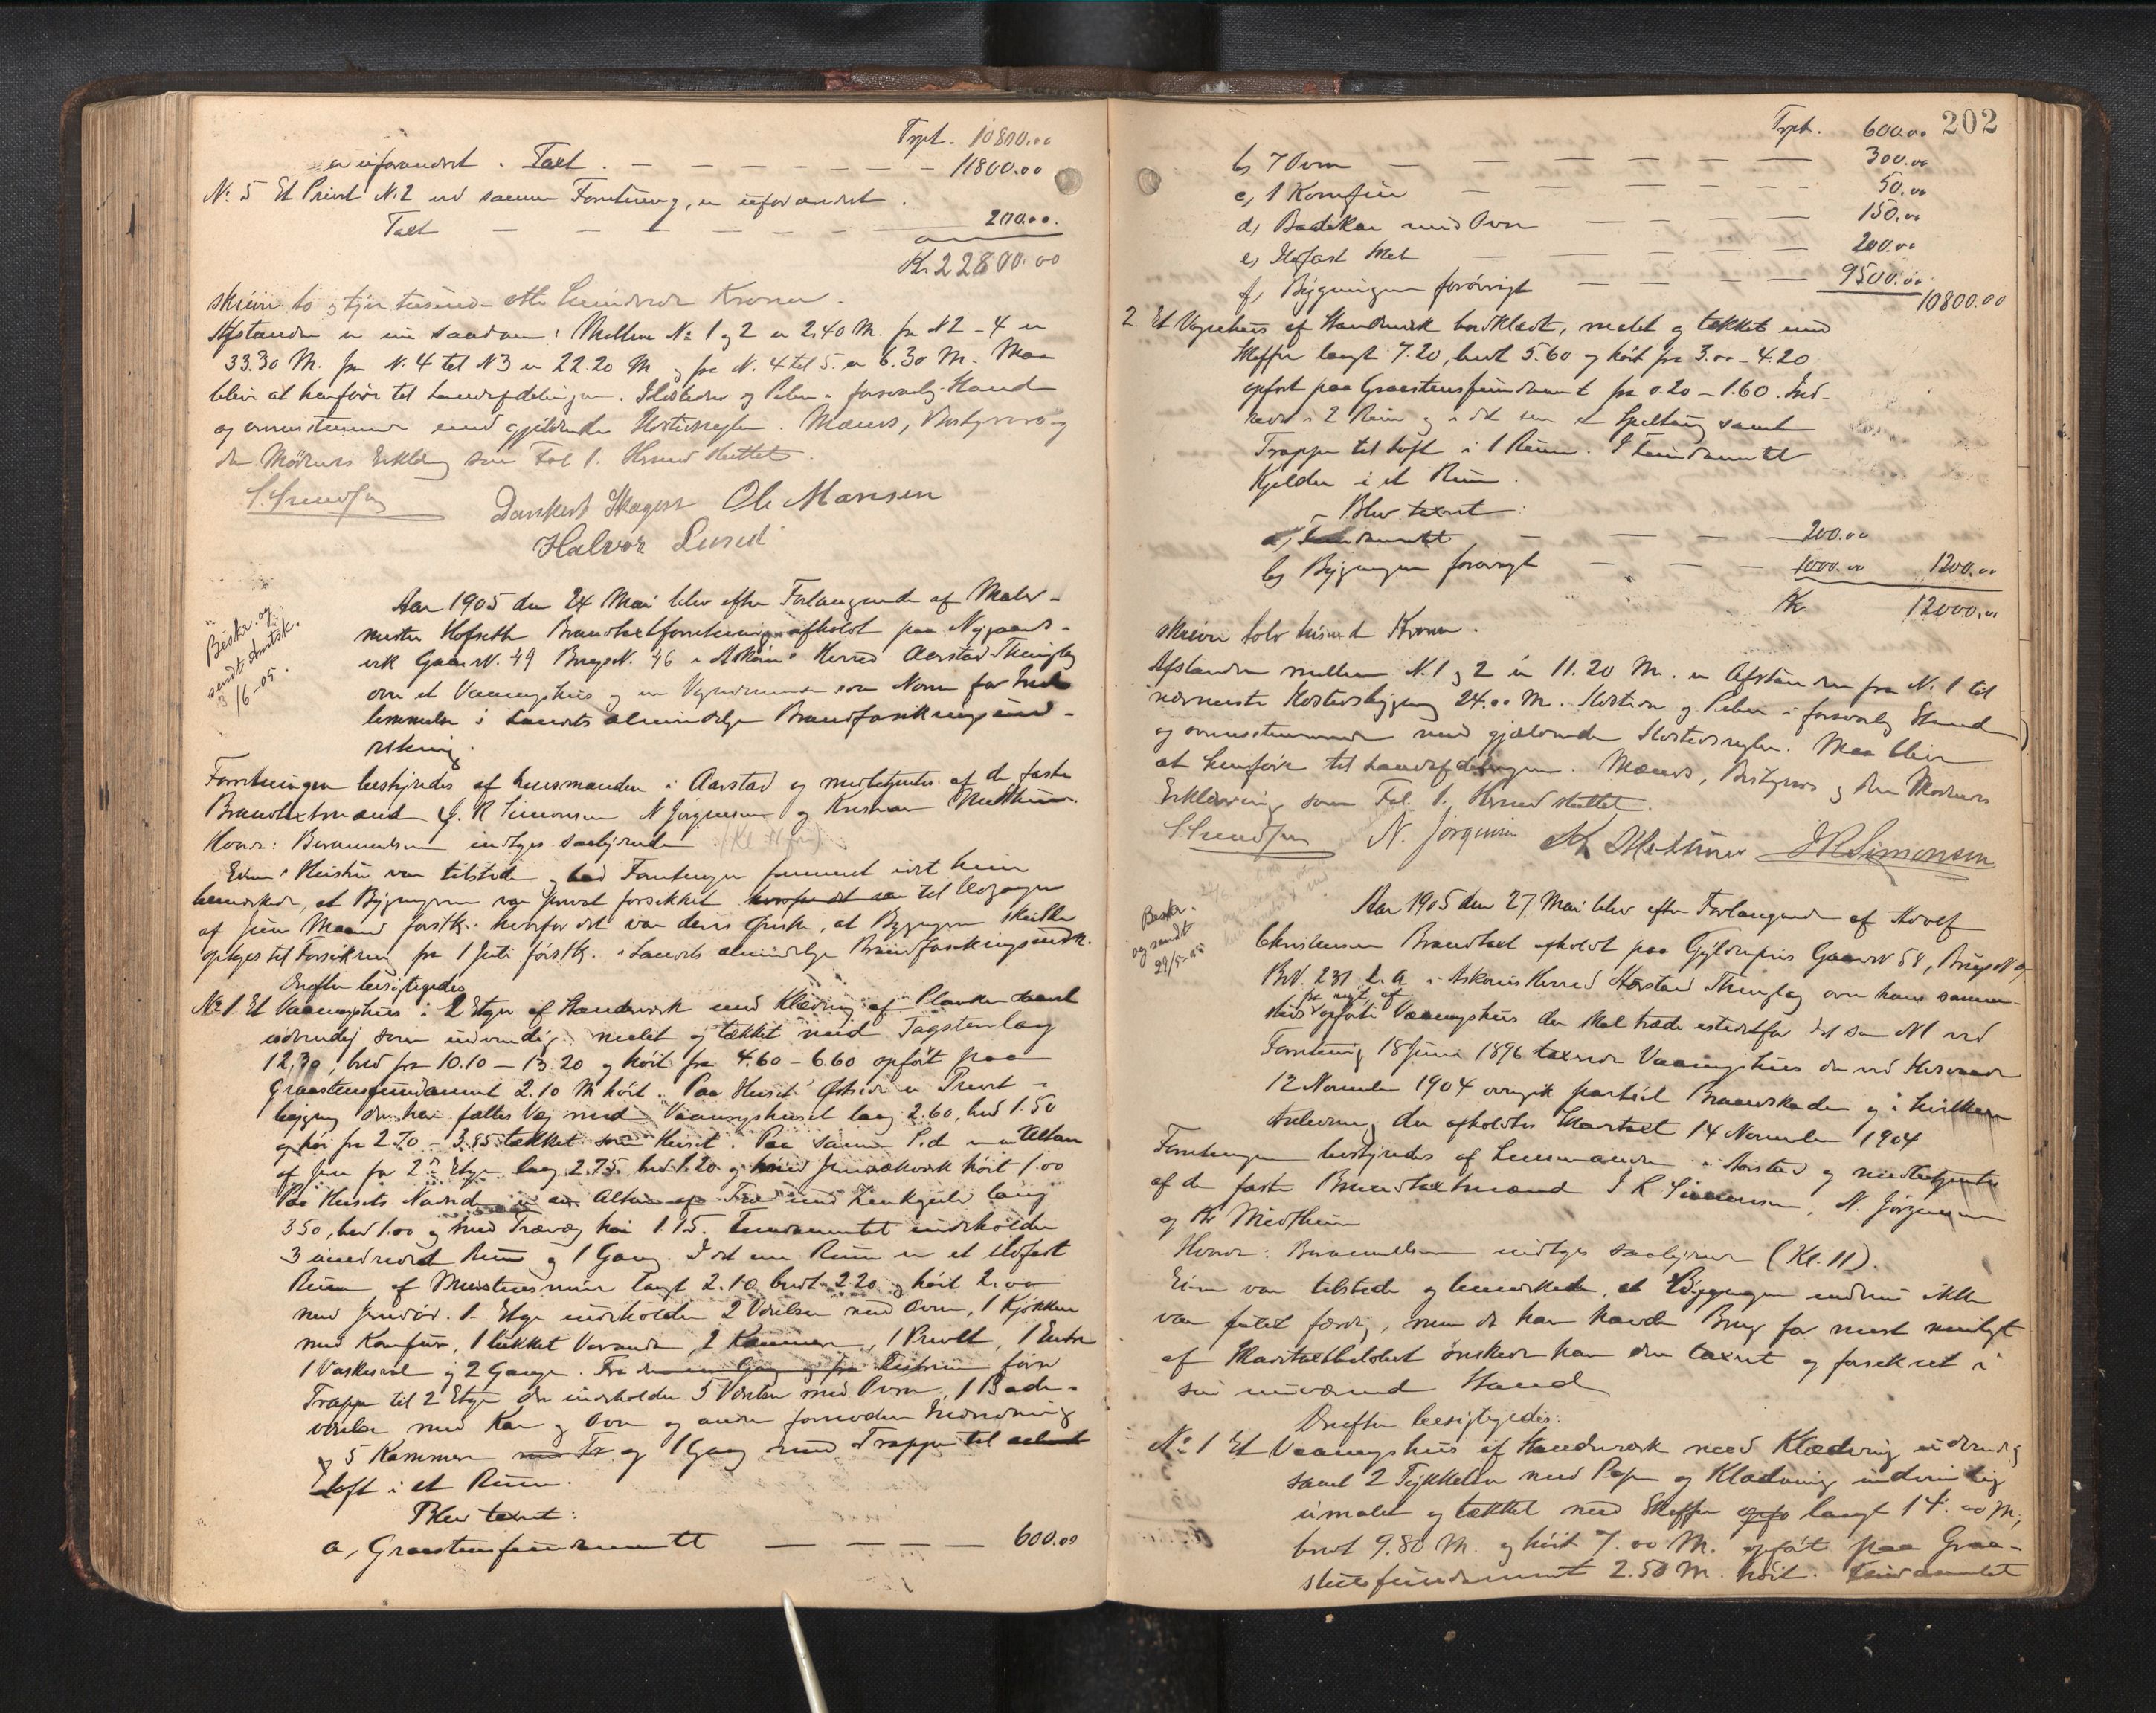 Trpt. 10800.00
er uforandret. Taxt. — — — — — — 11800.00
No. 5 Et Privet N. 2 ved samme Forretning, er uforandret.
Taxt — — — — — — 200.00.
Kr. 22800.00
skriver to og tyve tusinde otte hundrede Kroner.
Afstanden er nu saadan: Mellem No 1 og 2 er 2,40 M. fra N 2 - 4 er
33.30 M. fra N. 4 til N 3 er 22.20 M og fra N. 4 til 5. er 6.30 M. Maa
blive at henføre til Landafdelingen. Ildsteder og Piber i forsvarlig Stand
og overensstemmende med gjeldende Ildstedsregler. Mænds, Bestyrers og
den Mødendes Erklæring som Fol 1. Hermed sluttet.
Dankert Skagen Ole Mansen
Halvor Lund
Beskr. og
sendt Amtsk.
3/6-05.
Aar 1905 den 24 Mai blev efter Forlangende af Maler-
mester Hofseth Brandtaxtforretning afholdt paa Nygaards-
vik Gaards N. 49 Brugs N. 46 i Askøens Herred Aarstad Thinglag
over et Vaaningshus og en Vognremisse som Norm for Ind-
lemmelse i Landets almindelige Brandforsikringsind-
retning.
Forretningen bestyredes af Lensmanden i Aarstad og medbetjentes af de faste
Brandtaxtmænd J. R Simonsen N Jörgensen og Kristian Midtthun.
Hvorda: Berammelsen indtages saalydende
Eieren Meister var tilstede og lod Forretningen fremmet idet han
bemærkede, at Bygningerne var privat forsikket til Udgangen
af Juni Maaned førstk. hvorfor det var deres Ønske, at Bygningerne skulde
optages til Forsikring fra 1 Juli førstk. i Landets almindelige Brandforsikringsindr.
Derefter besigtigedes
No 1. Et Vaaningshus i 2 Etager af Standværk med Klædning af Planker saavel
udvendig som indvendig, malet og tækket med Tagsten lang
12,30, bred fra 10.10 — 13.20 og höit fra 4.60 — 6.60 opfört paa
Graastensfundament 2.10 M höit. Paa Husets Østside er Privet-
bygning der har fælles Væg med Vaaningshuset lang 2.60, bred 1.50
og höi fra 2.70 - 3.85 tækket som Huset. Paa samme Side er en Altan
af Jern fra 2den Etage lang 2.75 bred 1.20 og med Jernrækværk höit 1.00
Paa Husets Nordside er en Altan af Træ med Zinkgulv lang
3.50, bred 1.00 og med Trævæg höi 1.15. Fundamentet indeholder
3 indredet Rum og 1 Gang. I det ene Rum er et ildfast
Rum af Murstensmur langt 2.10 bredt 2.20 og höit 2.00
med Jerndör. 1. Etage indeholder 2 Værelser med Ovn, 1 Kjökken
med Komfur, 1 lukket Veranda, 2 Kammer, 1 Privet, 1 Entre
1 Vaskerval og 2 Gange. Fra den ene Gang og fra Entreen förer
Trapper til 2 Etage der indeholder 5 Værelser med Ovn, 1 Bade-
værelse med Kar og Ovn og anden fornöden Indredning
og 5 Kammer med Tr og 1 Gang med Trappe til
Loft i et Rum.
Blev taxeret:
a, Graastensfundamentet — — — — 600.00
202
Trpt. 600.00
b, 7 Ovne — — — — — — 300.00
c, 1 Komfur — — — — — — 50.00
d, Badekar med Ovn — — — — 150.00
e, Ildfast Hvelv — — — — 200.00
f, Bygningen forövrigt — — — 9500.00 10800.00
2. Et Vognhus af Standværk bordklædt, malet og tækket med
Skiffer langt 7.20, bredt 5.60 og höit fra 3.00 - 4.20
opfört paa Graastensfundament fra 0.20 - 1.60. Ind-
redet i 2 Rum og i det ene et Spiltoug samt
Trappe til Loft i 1 Rum. I Fundamentet
Kjelder i et Rum.
Blev taxeret:
a, Fundamentet — — — — 200.00
b, Bygningen forövrigt — — — 1000.00 1200.00
Kr. 12000.00
skriver tolv tusinde Kroner.
Afstanden mellem N. 1 og 2 er 11.20 M. er Afstanden fra N. 1 til
nærmeste Ildstedsbygning 24.00 M. Ildsteder og Piber i forsvarlig Stand
og overensstemmende med gjældende Ildstedsregler. Maa blive
at henføre til Landafdelingen. Mænds, Bestyrers og den Mødendes
Erklæring som Fol. 1. Hermed sluttet.
N. Jörgensen Kr Midtthun J R Simonsen
Beskr.
og sendt
29/5-05
Aar 1905 den 27 Mai blev efter Forlangende af Adolf
Christensen Brandtaxt afholdt paa Gyldenpris Gaards N 58, Brugs N 9,
Br N. 231 L. a i Askøens Herred Aarstad Thinglag over hans sammen-
steds fra nyt af opförte Vaaningshus der skal træde istedetfor det som N 1 ved
Forretning 18 Juni 1896 taxerede Vaaningshus der ved Ildsvaade
12 November 1904 overgik partiel Brandskade og i hvilken
Anledning der afholdtes Skadetaxt 14 November 1904
Forretningen bestyredes af Lensmanden i Aarstad og medbetjentes
af de faste Brandtaxtmænd J R Simonsen, N. Jörgensen
og Kr Midtthun
Hvorda: Berammelsen indtages saalydende (Kl. 11).
Eieren var tilstede og bemærkede, at Bygningen endnu ikke
var fuldt færdig, men da han havde Brug for mest muligt
af Skadetaxtbelöbet ønskede han den taxeret og forsikret i
sin nuværende Stand
Derefter besigtigedes:
No 1 Et Vaaningshus af Standværk med Klædning udvendig
samt 2 Tykkelser med Papir og Klædning indvendig
umalet og tækket med Skiffer opfö langt 14.00 M,
bredt 9.80 M. og höit 7.00 M. opfört paa Graa-
stensfundament 2.50 M. höit. Fundamentet